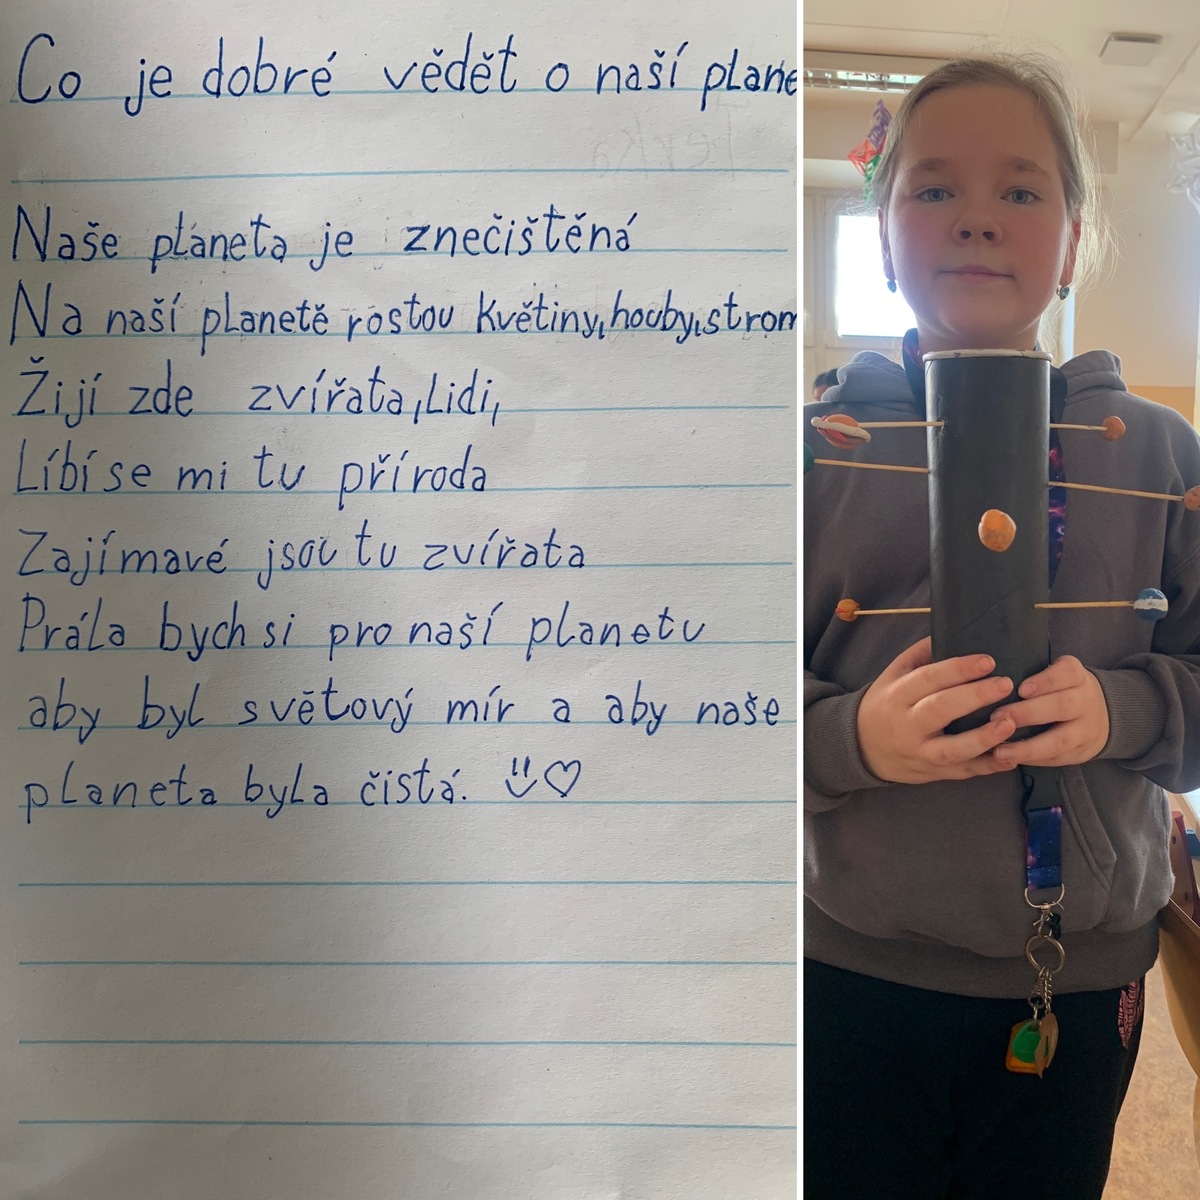 Co je dobré vědět o naší plane
Naše planeta je znečištěná
Na naší planetě rostou květiny,houby,strom
Žijí zde zvířata,lidi,
Líbí se mi tu příroda
Zajímavé jsou tu zvířata
Prála bych si pro naší planetu
aby byl světový mír a aby naše
planeta byla čistá.